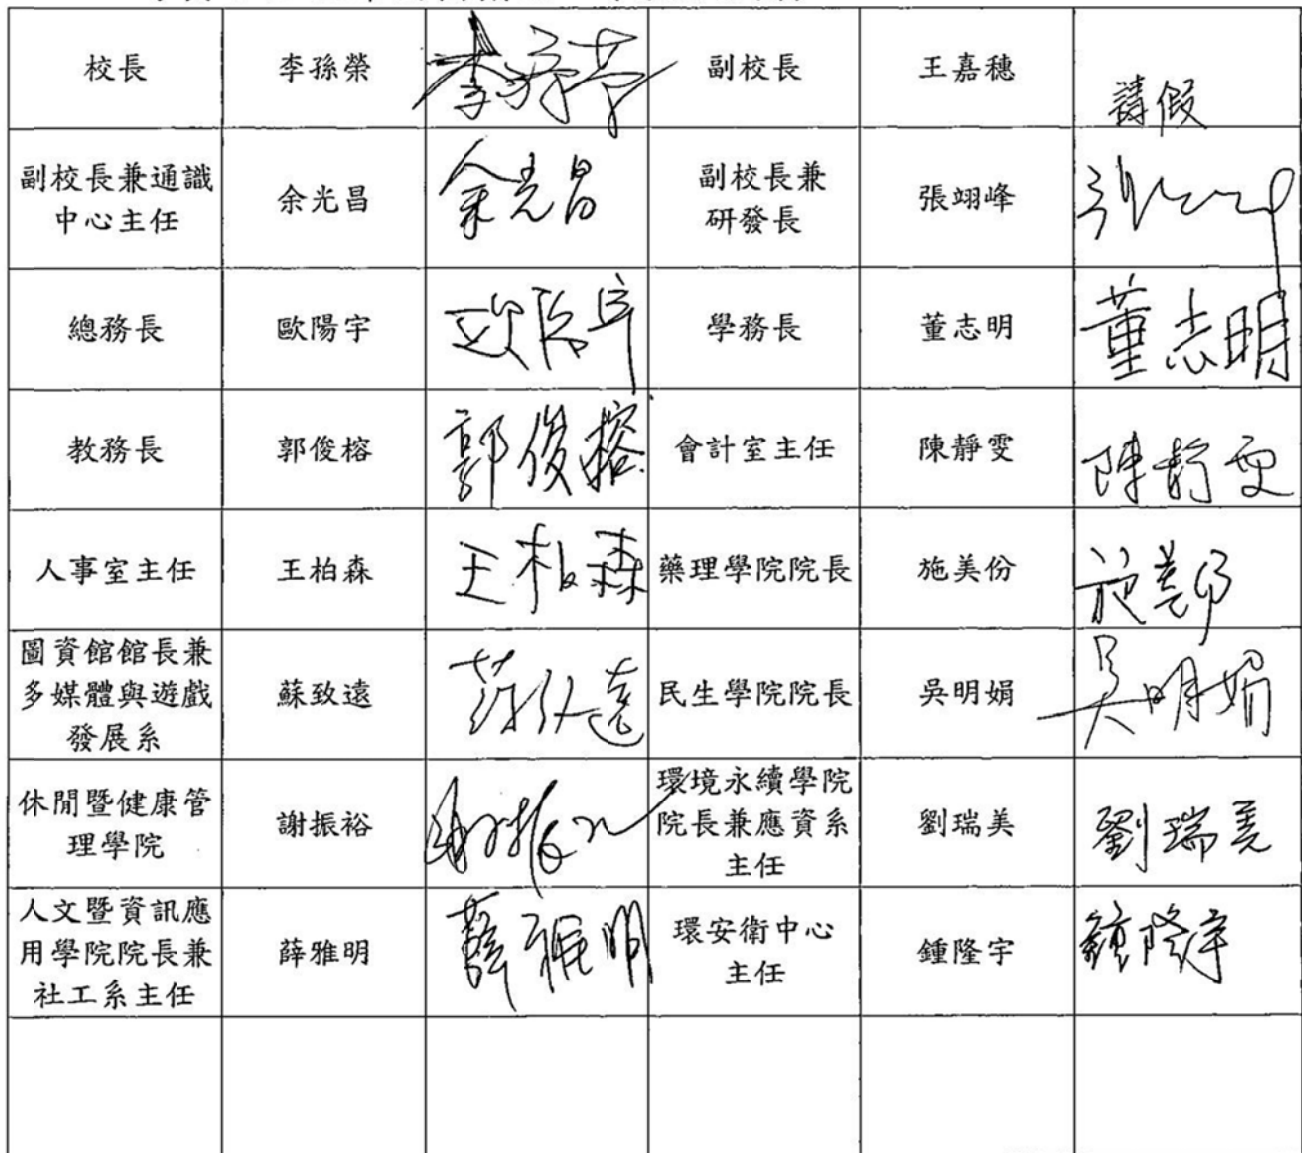 校長
李孫榮
李孫榮
副校長
王嘉穗
請假
副校長兼通識
中心主任
余光昌
余光昌
副校長兼
研發長
張翊峰
總務長
歐陽宇
學務長
董志明
董志明
教務長
郭俊榕
郭俊榕
會計室主任
陳靜雯
陳靜雯
人事室主任
王柏森
王柏森
藥理學院院長
施美份
施美份
圖資館館長兼
多媒體與遊戲
發展系
蘇致遠
民生學院院長
吳明娟
吳明娟
休閒暨健康管
理學院
謝振裕
環境永續學院
院長兼應資系
主任
劉瑞美
劉瑞美
人文暨資訊應
用學院院長兼
社工系主任
薛雅明
薛雅明
環安衛中心
主任
鍾隆宇
鍾隆宇